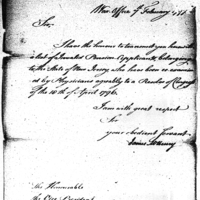 War Office 7 February 179
Sir,
I have the honour to transmit you herewith
a list of Invalid Pension Applicants belonging
to the State of New Jersey who have been re examin
ed by Physicians agreeably to a Resolve of Congress
of the 16th of April 1796.
I am with great respect
Sir
your obedient servant
James McHenry
The Honorable
the Vice President